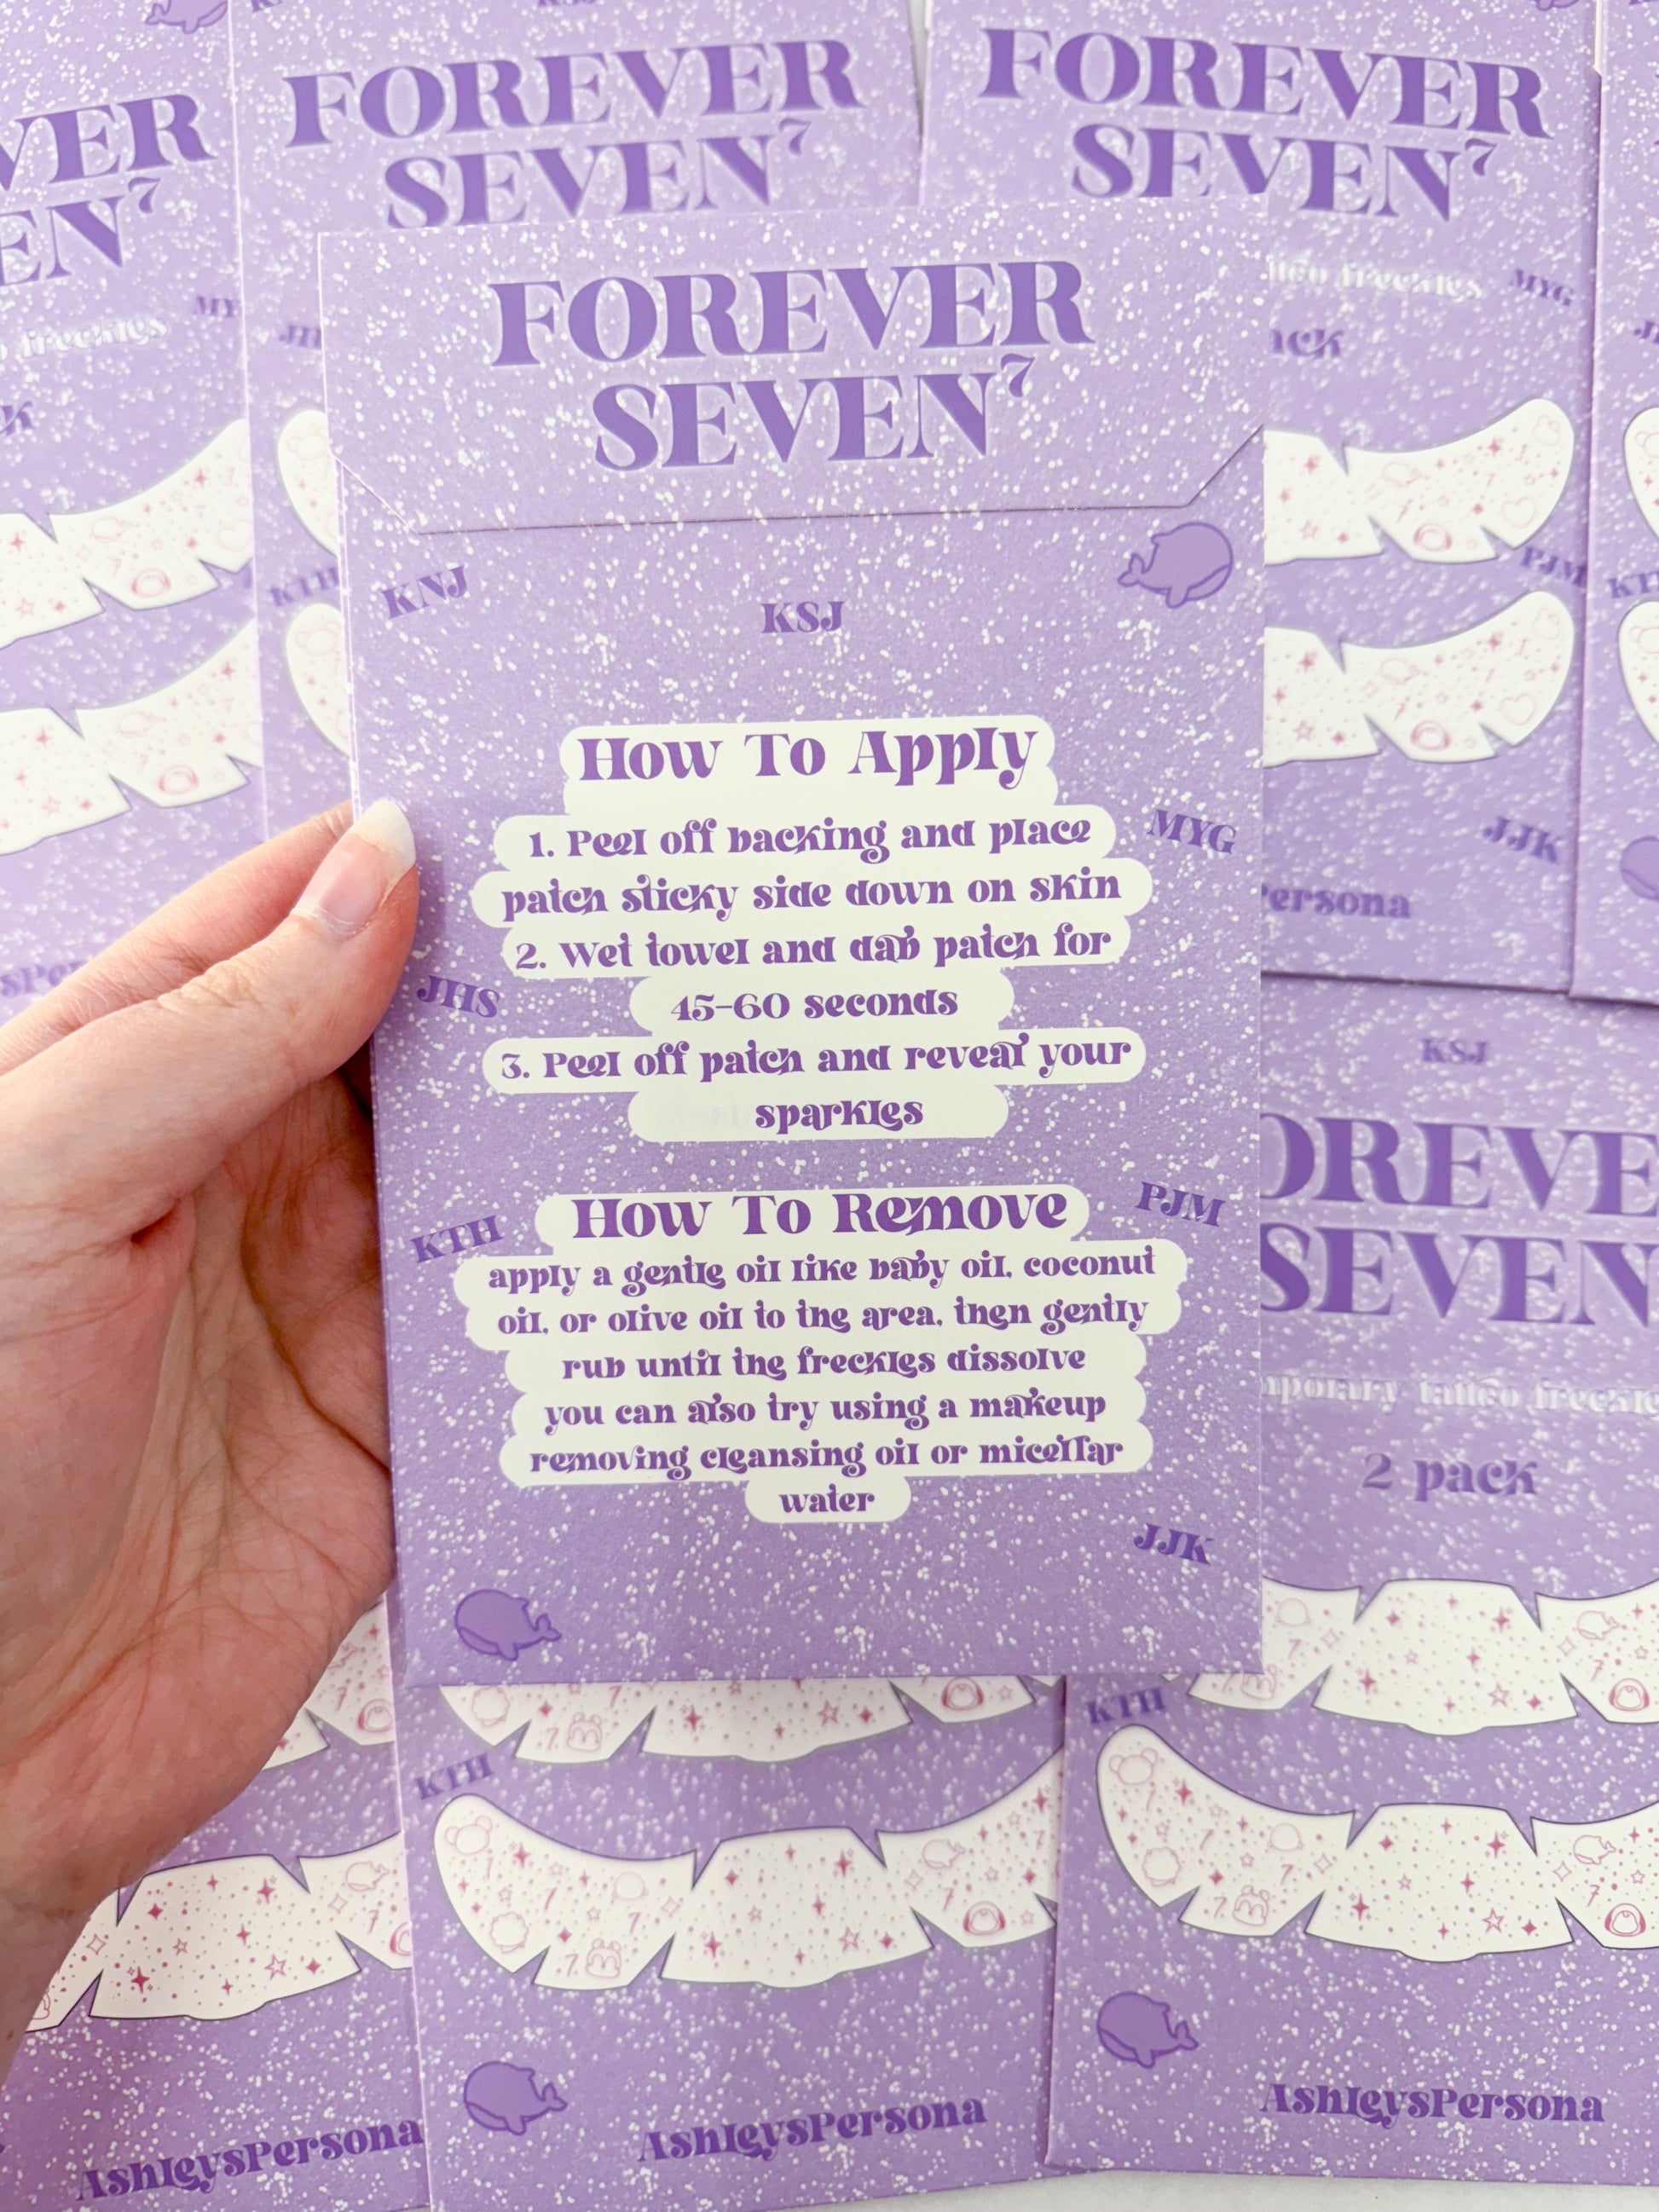 FOREVER
SEVEN7
FOREVER
SEVEN7
VER
EN7
MYG
freckles
MYG
FOREVER
SEVEN7
KNJ
KSJ
How To Apply
1. Peel off backing and place
patch sticky side down on skin
2. Wet towel and dab patch for
45-60 seconds
3. Peel off patch and reveal your
sparkles
MYG
JHS
How To Remove
KTH
PJM
apply a gentle oil like baby oil, coconut
oil, or olive oil to the area, then gently
rub until the freckles dissolve
you can also try using a makeup
removing cleansing oil or micellar
water
JJK
KTH
PJM
JJK
Persona
KSJ
OREVE
SEVEN
tattoo freckles
2 pack
KTH
KTH
AshleysPersona
AshleysPersona
AshleysPersona